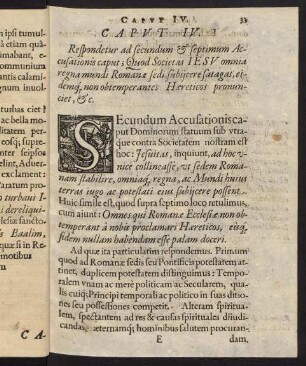 CAPVT IV.
33
CAPVT IV.
Respondetur ad secundum & septimum Ac-
cusationis caput; Quod Societas IESV omnia
regna mundi Romanæ sedi subijcere satagat, et-
demq́, non obtemperantes Hæreticos pronun-
ciet, &c.
SEcundum Accusationis ca-
put Dominorum statuum sub vtra-
que contra Societatem nostram est
hoc: Jesuitas, inquiunt, ad hoc v-
nicè collimasse, vt sedem Roma-
nam stabilire, omniaq́, regna, ac Mundi huius
terras iugo ac potestati eius subijcere possent.
Huic simile est, quod supra septimo loco retulimus,
cum aiunt: Omnes qui Romanæ Ecclesiæ non ob-
temperant à nobis proclamari Hæreticos, eisq́,
fidem nullam habendam esse palam doceri.
Ad quæ ita particulatim respondemus. Primum
quod ad Romanæ sedis seu Pontificis potestatem at-
tinet, duplicem potestatem distinguimus: Tempora-
lem vnam ac merè politicam ac Secularem, qua-
lis cuiq́; Principi temporali ac politico in suas ditio-
nes seu possessiones competit. Alteram spiritua-
lem, spectantem ad res & causas spirituales diiudi-
candas, æternamq́; hominibus salutem procuran-
E
dam,
m ipsi tumul-
à etiam quàm
umabant, e-
ommunicant
antis calami-
gnum insuper
turbas ciet
ac bella mo-
ditatem per-
torumq́; ob-
Adeo quære
exclamem:
paratum pro-
turbani I-
i dereliqui-
lesiæ sancto-
s Baalim,
quæ si in Re-
emotibus
m
C A-